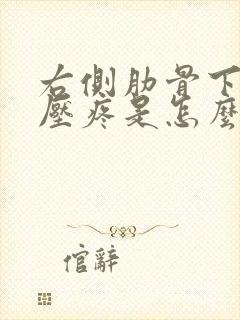 右側肋骨下
壓疼是怎麼
倌辭